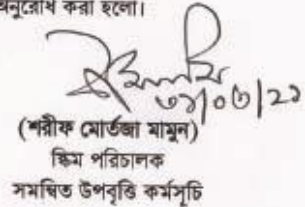 অনুরোধ করা হলো।
৩১/০৩/২১
(শরীফ মোর্তজা মামুন)
স্কিম পরিচালক
সমন্বিত উপবৃত্তি কর্মসূচি